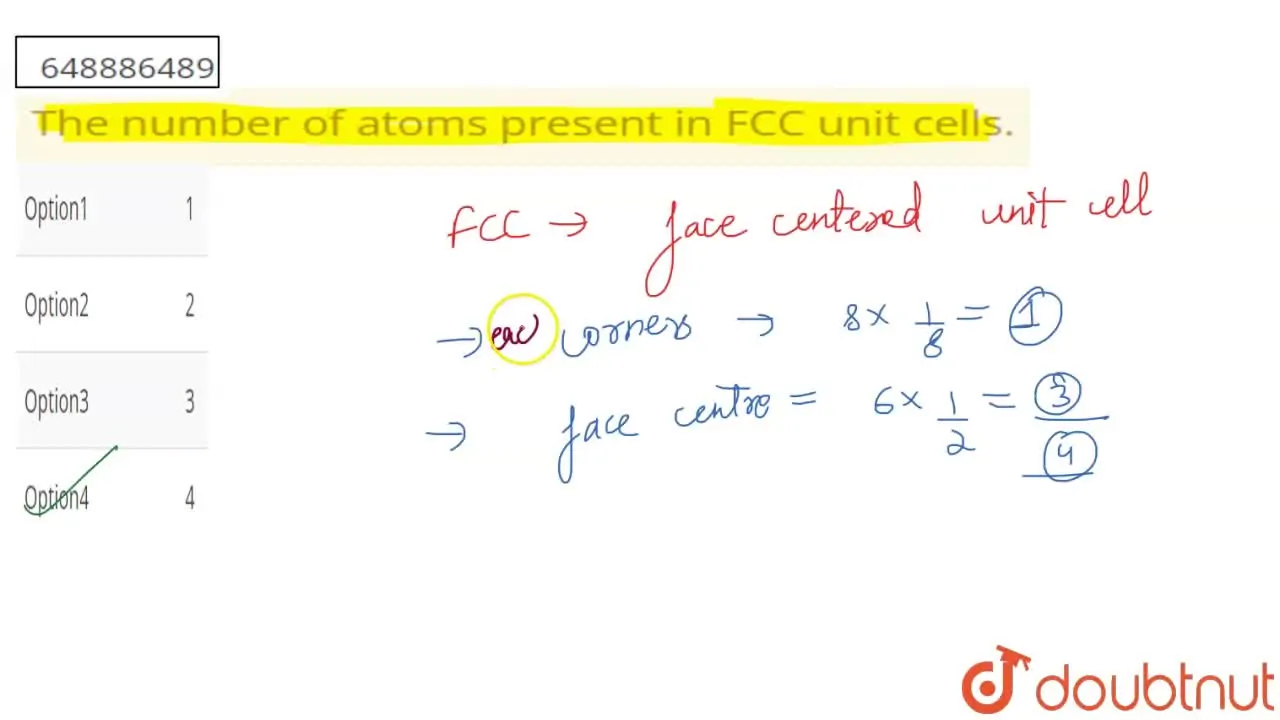 648886489
The number of atoms present in FCC unit cells.
Option1 1
Option2 2
Option3 3
Option4 4
FCC → face centered unit cell
→ corners → 8 × 1/8 = 1
→ face centre = 6 × 1/2 = 3
4
doubtnut